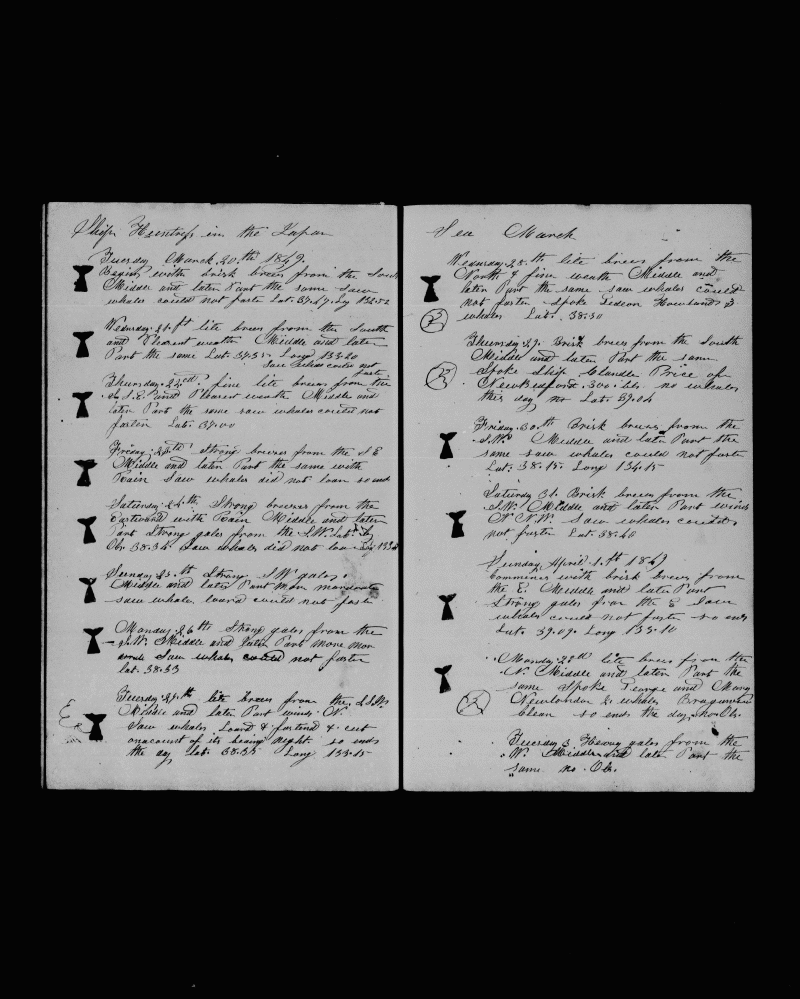 Ship Huntress in the Japan
Tuesday March 20th 1849.
Begins with brisk brees from the South
Middle and later Part the same saw
whales could not faste Lat. 37.47. Lg 132.52
Wedensday 21.st lite brees from the South
and Plesent weath Middle and later
Part the same Lat. 37.35 Long 133.20
saw whales could not
faste
Thursday. 22ed. fine lite brees from the
S.E. and Plesent weath Middle and
later Part the same saw whales could not
fasten Lat. 37.00
Friday 23th Strong brees from the S E
Middle and later Part the same with
Rain Saw whales did not loar so ends
Saturday 24.th Strong breeses from the
Eastward with Rain Middle and later
Part Strong gales from the S.W. Lat. by
Ob. 38.34 Saw whales did not
Sunday 25.th Strong S.W gales.
Middle and later Part more
saw whales loard could not faste
Monday 26th Strong gales from the
S.W. Middle and later Part more
Saw whales could not fasten
Lat. 38.33
Tuesday 27.th lite brees from the S.S.W
Middle and later Part winds N.
Saw whales Loard & fastend & cut
onacount of its being night so ends
the day Lat. 38.35 Long 133.15
Sea March
Wedensday 28.th lite brees from the
North & fine weath Middle and
later Part the same saw whales could
not fasten spoke Gideon Howland 3
whales Lat. 38.30
Thursday 29. Brisk brees from the South
Middle and later Part the same
Spoke Ship Price of
New Bedford. 300. bls no whales
this day no Lat. 39.04
Friday 30th Brisk brees from the
S.W. Middle and later Part the
same saw whales could not faste
Lat. 38.15. Long 134.15
Saturday 31. Brisk brees from the
S.W. Middle and later Part winds
N.N.W. Saw whales could
not fasten Lat. 38.40
Sunday April 1.st 1849
Commences with brisk brees from
the E. Middle and later Part
Strong gales from the E Saw
whales could not faste so ends
Lat. 39.09. Long 133.10
Monday 2ed lite brees from the
N. Middle and later Part the
same Spoke George and Mary
Newlondon 2 whales
Clean so ends the day no Ob.
Tuesday 3 Heavy gales from the
W. Middle and later Part the
same no Ob.